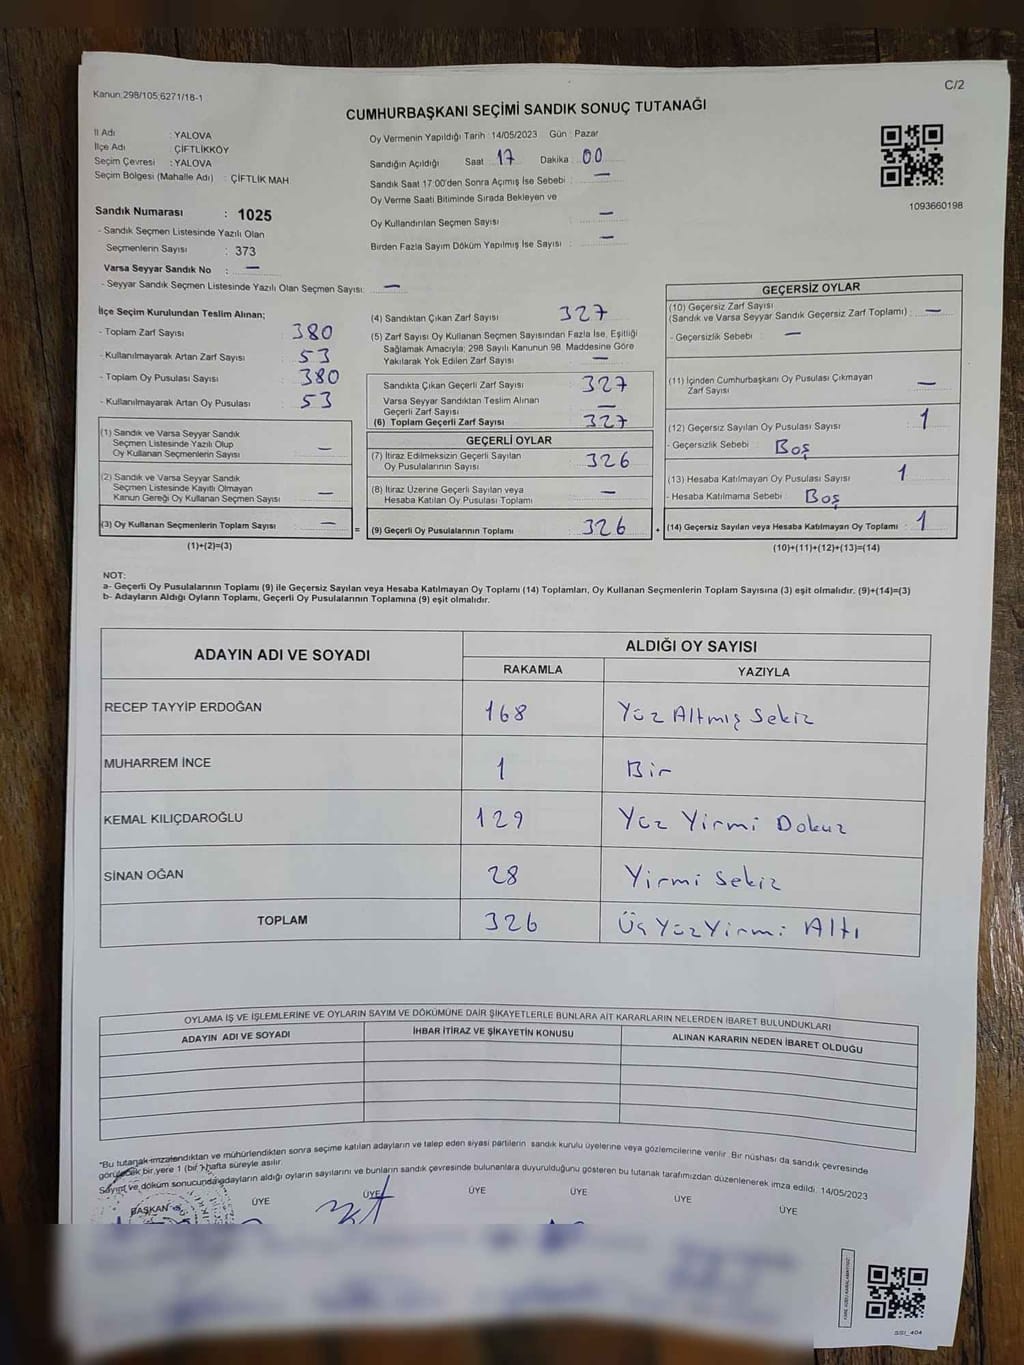 Kanun;298/105;6271/18-1
C/2
CUMHURBAŞKANI SEÇİMİ SANDIK SONUÇ TUTANAĞI
İl Adı : YALOVA
İlçe Adı : ÇİFTLİKKÖY
Seçim Çevresi : YALOVA
Seçim Bölgesi (Mahalle Adı) : ÇİFTLİK MAH.
Sandık Numarası : 1025
- Sandık Seçmen Listesinde Yazılı Olan
Seçmenlerin Sayısı : 373
Varsa Seyyar Sandık No : —
- Seyyar Sandık Seçmen Listesinde Yazılı Olan Seçmen Sayısı: —
Oy Vermenin Yapıldığı Tarih : 14/05/2023 Gün : Pazar
Sandığın Açıldığı Saat 17 Dakika 00
Sandık Saat 17:00'den Sonra Açımış İse Sebebi : —
Oy Verme Saati Bitiminde Sırada Bekleyen ve
Oy Kullandırılan Seçmen Sayısı : —
Birden Fazla Sayım Döküm Yapılmış İse Sayısı : —
1093660198
İlçe Seçim Kurulundan Teslim Alınan;
- Toplam Zarf Sayısı : 380
- Kullanılmayarak Artan Zarf Sayısı : 53
- Toplam Oy Pusulası Sayısı : 380
- Kullanılmayarak Artan Oy Pusulası : 53
(1) Sandık ve Varsa Seyyar Sandık
Seçmen Listesinde Yazılı Olup
Oy Kullanan Seçmenlerin Sayısı : —
(2) Sandık ve Varsa Seyyar Sandık
Seçmen Listesinde Kayıtlı Olmayan
Kanun Gereği Oy Kullanan Seçmen Sayısı : —
(3) Oy Kullanan Seçmenlerin Toplam Sayısı : —
(1)+(2)=(3)
=
(4) Sandıktan Çıkan Zarf Sayısı : 327
(5) Zarf Sayısı Oy Kullanan Seçmen Sayısından Fazla İse, Eşitliği
Sağlamak Amacıyla; 298 Sayılı Kanunun 98. Maddesine Göre
Yakılarak Yok Edilen Zarf Sayısı : —
Sandıkta Çıkan Geçerli Zarf Sayısı : 327
Varsa Seyyar Sandıktan Teslim Alınan
Geçerli Zarf Sayısı : —
(6) Toplam Geçerli Zarf Sayısı : 327
GEÇERLİ OYLAR
(7) İtiraz Edilmeksizin Geçerli Sayılan
Oy Pusulalarının Sayısı : 326
(8) İtiraz Üzerine Geçerli Sayılan veya
Hesaba Katılan Oy Pusulası Toplamı : —
(9) Geçerli Oy Pusulalarının Toplamı : 326
+
GEÇERSİZ OYLAR
(10) Geçersiz Zarf Sayısı
(Sandık ve Varsa Seyyar Sandık Geçersiz Zarf Toplamı) : —
- Geçersizlik Sebebi : —
(11) İçinden Cumhurbaşkanı Oy Pusulası Çıkmayan
Zarf Sayısı : —
(12) Geçersiz Sayılan Oy Pusulası Sayısı : 1
- Geçersizlik Sebebi : Boş
(13) Hesaba Katılmayan Oy Pusulası Sayısı : 1
- Hesaba Katılmama Sebebi : Boş
(14) Geçersiz Sayılan veya Hesaba Katılmayan Oy Toplamı : 1
(10)+(11)+(12)+(13)=(14)
NOT:
a- Geçerli Oy Pusulalarının Toplamı (9) ile Geçersiz Sayılan veya Hesaba Katılmayan Oy Toplamı (14) Toplamları, Oy Kullanan Seçmenlerin Toplam Sayısına (3) eşit olmalıdır. (9)+(14)=(3)
b- Adayların Aldığı Oyların Toplamı, Geçerli Oy Pusulalarının Toplamına (9) eşit olmalıdır.
ADAYIN ADI VE SOYADI ALDIĞI OY SAYISI
RAKAMLA YAZIYLA
RECEP TAYYİP ERDOĞAN 168 Yüz Altmış Sekiz
MUHARREM İNCE 1 Bir
KEMAL KILIÇDAROĞLU 129 Yüz Yirmi Dokuz
SİNAN OĞAN 28 Yirmi Sekiz
TOPLAM 326 Üç Yüz Yirmi Altı
OYLAMA İŞ VE İŞLEMLERİNE VE OYLARIN SAYIM VE DÖKÜMÜNE DAİR ŞİKAYETLERLE BUNLARA AİT KARARLARIN NELERDEN İBARET BULUNDUKLARI
ADAYIN ADI VE SOYADI İHBAR İTİRAZ VE ŞİKAYETİN KONUSU ALINAN KARARIN NEDEN İBARET OLDUĞU
"Bu tutanak imzalandıktan ve mühürlendikten sonra seçime katılan adayların ve talep eden siyasi partilerin sandık kurulu üyelerine veya gözlemcilerine verilir. Bir nüshası da sandık çevresinde
görülecek bir yere 1 (bir) hafta süreyle asılır.
Sayım ve döküm sonucunda adayların aldığı oyların sayılarını ve bunların sandık çevresinde bulunanlara duyurulduğunu gösteren bu tutanak tarafımızdan düzenlenerek imza edildi. 14/05/2023
BAŞKAN ÜYE ÜYE ÜYE ÜYE ÜYE ÜYE
SSI_404